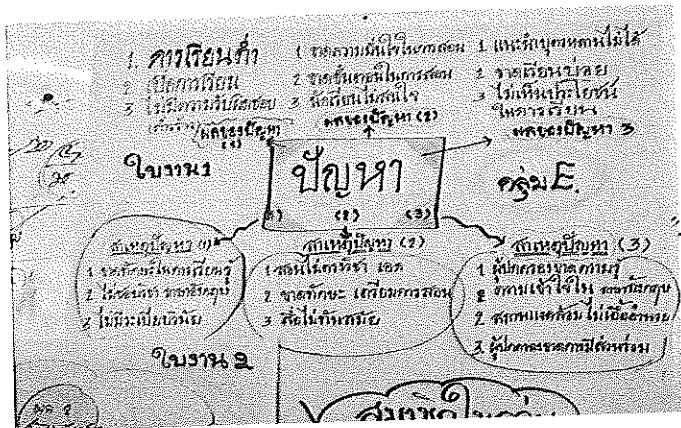 1. การเรียนต่ำ
2 เบื่อการเรียน
3 ไม่มีความรับผิดชอบ
ผลของปัญหา
(1)
1 ขาดความมั่นใจในการสอน
2 ขาดขั้นตอนในการสอน
3 นักเรียนไม่สนใจ
ผลของปัญหา (2)
1 แนะนำบุตรหลานไม่ได้
2 ขาดเรียนบ่อย
3 ไม่เห็นประโยชน์
ในการเรียน
ผลของปัญหา 3
ใบงาน1
ปัญหา
(2) (3)
กลุ่ม E.
สาเหตุปัญหา (1)
1 ขาดทักษะในการเรียนรู้
2 ไม่ชอบวิชา ภาษาอังกฤษ
3 ไม่มีระเบียบวินัย
สาเหตุปัญหา (2)
1 สอนไม่ตรงวิชา เอก
2 ขาดทักษะ เตรียมการสอน
3 สื่อไม่ทันสมัย
สาเหตุปัญหา (3)
1 ผู้ปกครองขาดความรู้
ความเข้าใจใน ภาษาอังกฤษ
2 สภาพแวดล้อมไม่เอื้ออำนวย
3. ผู้ปกครองขาดการมีส่วนร่วม
ใบงาน 2